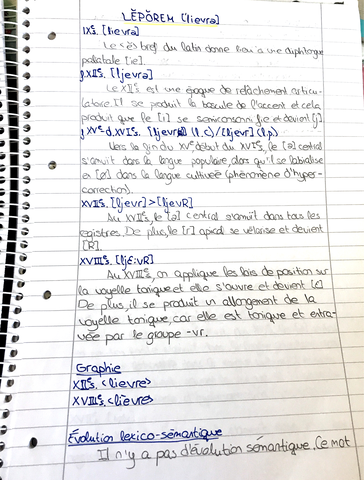 LĔPŎREM (lievrə)
IXᵉs. [lievrə]
Le ĕ bref du latin donne lieu à une diphtongue
palatale [ie].
XIIᵉs. [ljevrə]
Le XIIᵉs est une époque de relâchement articu-
latoire. Il se produit la bascule de l'accent et cela
produit que le [i] se semiconsonnifie et devient [j].
XVᵉ-d.XVIᵉs. [ljevrə] (l.c) / [ljevr] (l.p)
Vers la fin du XVᵉ début du XVIᵉs, le [ə] central
s'amuït dans la langue populaire, alors qu'il se labialise
en [ø] dans la langue cultivée (phénomène d'hyper-
correction).
XVIIᵉs. [ljevr] > [ljevR]
Au XVIIᵉs, le [ə] central s'amuït dans tous les
registres. De plus, le [r] apical se vélarise et devient
[R].
XVIIIᵉs. [ljɛ:vR]
Au XVIIIᵉs, on applique les lois de position sur
la voyelle tonique et elle s'ouvre et devient [ɛ]
De plus, il se produit un allongement de la
voyelle tonique, car elle est tonique et entra-
vée par le groupe -vr.
Graphie
XIIᵉs. <lievre>
XVIIIᵉs. <lièvre>
Évolution lexico-sémantique
Il n'y a pas d'évolution sémantique. Ce mot